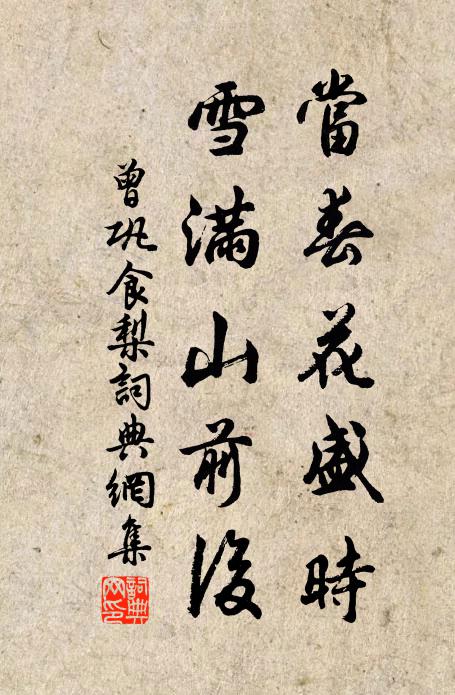 當春花盛時
雪滿山前後
曾巩食梨詞典網集
詞典網印